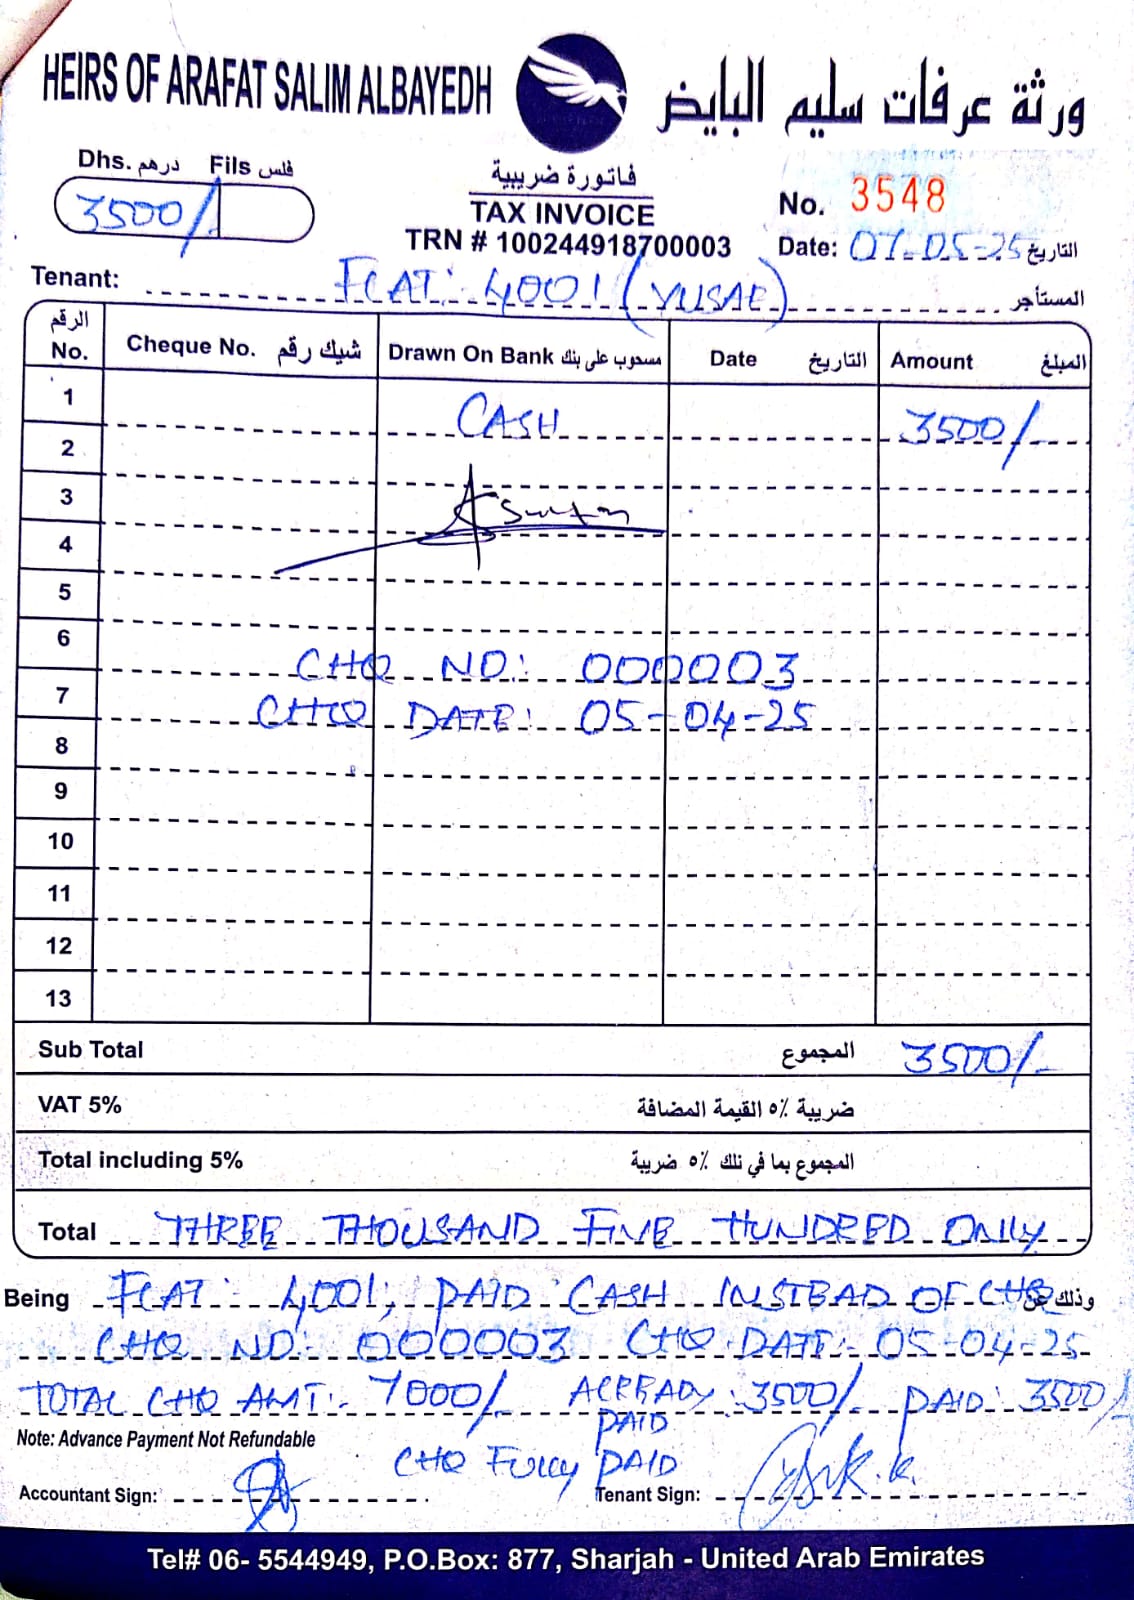 HEIRS OF ARAFAT SALIM ALBAYEDH
ورثة عرفات سليم البايض
Dhs. درهم Fils فلس
3500/
فاتورة ضريبية
TAX INVOICE
TRN # 100244918700003
No. 3548
Date: 07-05-25 التاريخ
Tenant: FLAT: 4001 (YUSAF) المستأجر
الرقم No. Cheque No. شيك رقم Drawn On Bank مسحوب على بنك Date التاريخ Amount المبلغ
1 CASH 3500/-
2
3
4
5
6 CHQ NO: 000003
7 CHQ DATE: 05-04-25
8
9
10
11
12
13
Sub Total المجموع 3500/-
VAT 5% ضريبة ٥٪ القيمة المضافة
Total including 5% المجموع بما في تلك ٥٪ ضريبة
Total THREE THOUSAND FIVE HUNDRED ONLY
Being FLAT: 4001, PAID CASH INSTEAD OF CHQ وذلك عن
CHQ NO:- 000003 CHQ DATE:- 05-04-25
TOTAL CHQ AMT:- 7000/- ALREADY PAID: 3500/- PAID: 3500/-
Note: Advance Payment Not Refundable
CHQ FULLY PAID
Accountant Sign:
Tenant Sign:
Tel# 06- 5544949, P.O.Box: 877, Sharjah - United Arab Emirates